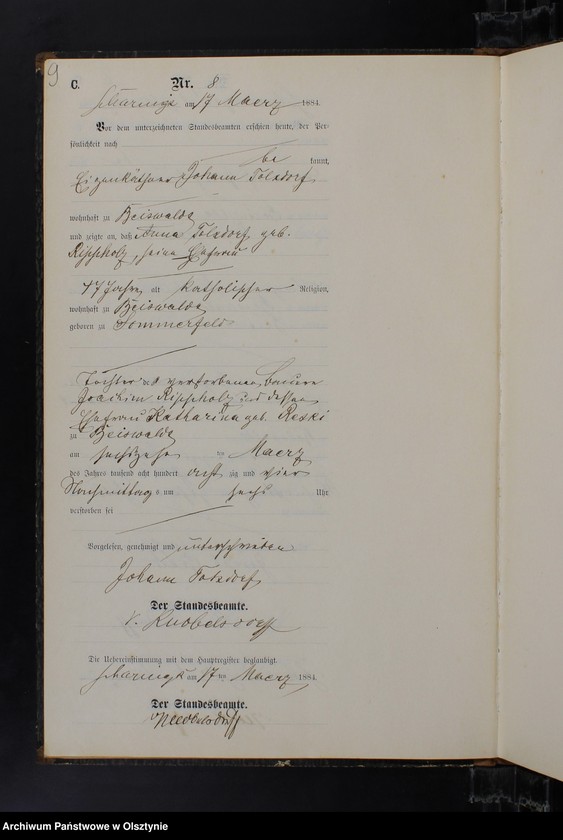 9
C.
Nr. 8
am 17 Maerz 1884.
Vor dem unterzeichneten Standesbeamten erschien heute, der Per-
sönlichkeit nach
be kannt,
Eigenkäthner Johann Tolxdorf
wohnhaft zu Beiswalde
und zeigte an, daß Anna Tolxdorf geb.
Rischholz, seine Ehefrau
47 Jahre alt katholischer Religion,
wohnhaft zu Beiswalde
geboren zu Sommerfeld
Tochter des verstorbenen Bauern
Joachim Rischholz und dessen
Ehefrau Katharina geb. Reski
zu Beiswalde
am sechszehn ten Maerz
des Jahres tausend acht hundert acht zig und vier
Nachmittag s um sechs Uhr
verstorben sei
Vorgelesen, genehmigt und unterschrieben
Johann Tolxdorf
Der Standesbeamte.
v. Knobelsdorff
Die Uebereinstimmung mit dem Hauptregister beglaubigt.
am 17 ten Maerz 1884.
Der Standesbeamte.
v Knobelsdorff
Archiwum Państwowe w Olsztynie